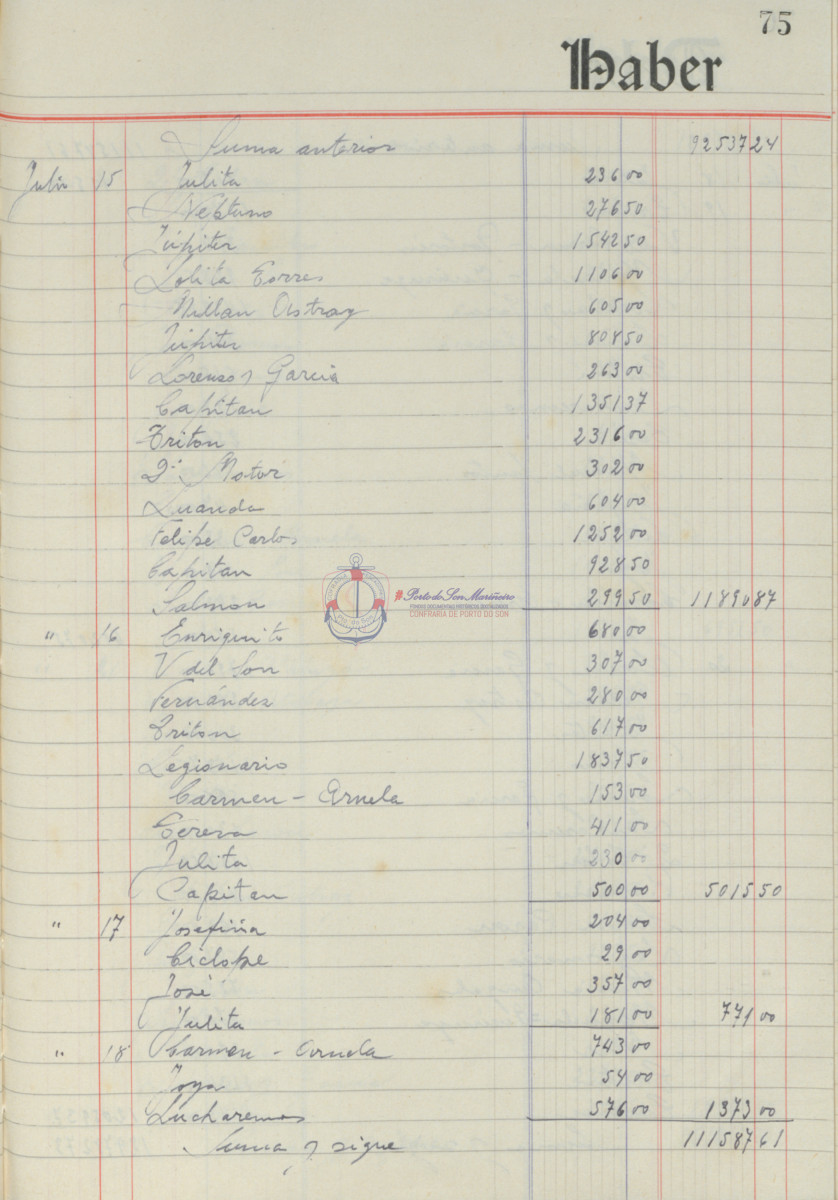 75
Haber
Suma anterior 92537 24
Julio 15 Julita 236 00
Neptuno 276 50
Júpiter 1542 50
Lolita Torres 1106 00
Millan Astray 605 00
Júpiter 808 50
Lorenzo y Garcia 263 00
Capitan 1351 37
Triton 2316 00
Motor 302 00
Luanda 604 00
Felipe Carlos 1252 00
Capitan 928 50
Salmon 299 50 11890 87
" 16 Enriquito 680 00
V del Son 307 00
Fernández 280 00
Triton 617 00
Legionario 1837 50
Carmen - Arnela 153 00
Tereva 411 00
Julita 230 00
Capitan 500 00 5015 50
" 17 Josefina 204 00
Ciclope 29 00
José 357 00
Julita 181 00 771 00
" 18 Carmen - Arnela 743 00
Joya 54 00
Lucharemos 576 00 1373 00
Suma y sigue 111587 61
#Porto do Son Mariñeiro
FONDOS DOCUMENTAIS HISTÓRICOS DIXITALIZADOS
CONFRARIA DE PORTO DO SON
Pto. do Son